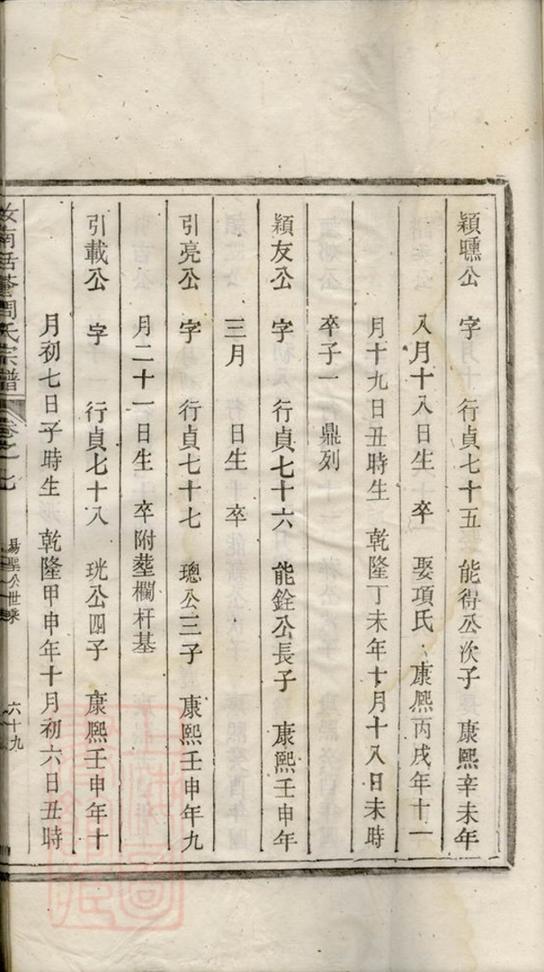 穎曛公 字 行貞七十五 能得公次子 康熙辛未年
八月十八日生 卒 娶項氏 康熙丙戌年十一
月十九日丑時生 乾隆丁未年十月十八日未時
卒子一 鼎列
穎友公 字 行貞七十六 能銓公長子 康熙壬申年
三月 日生 卒
引亮公 字 行貞七十七 璁公三子 康熙壬申年九
月二十一日生 卒附塟欄杆基
引載公 字 行貞七十八 珖公四子 康熙壬申年十
月初七日子時生 乾隆甲申年十月初六日丑時
汝南 周氏宗譜 卷之七 易聖公世系 六十九